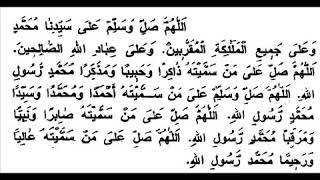 اَللّٰهُمَّ صَلِّ وَسَلِّمْ عَلَى سَيِّدِنَا مُحَمَّدٍ
وَعَلَى جَمِيعِ الْمَلٰئِكَةِ الْمُقَرَّبِينَ. وَعَلَى عِبَادِ اللهِ الصَّالِحِينَ.
اَللّٰهُمَّ صَلِّ عَلَى مَنْ سَمَّيْتَهُ ذَاكِرًا وَحَبِيبًا وَمُذَكِّرًا مُحَمَّدٍ رَّسُولِ
اللهِ. اَللّٰهُمَّ صَلِّ وَسَلِّمْ عَلَى مَنْ سَمَّيْتَهُ أَحْمَدًا وَمُحَمَّدًا وَسَيِّدًا
مُحَمَّدٍ رَّسُولِ اللهِ. اَللّٰهُمَّ صَلِّ عَلَى مَنْ سَمَّيْتَهُ صَابِرًا وَنَبِيًّا
وَمُرَقِّبًا مُحَمَّدٍ رَّسُولِ اللهِ. اَللّٰهُمَّ صَلِّ عَلَى مَنْ سَمَّيْتَهُ غَالِبًا
وَرَحِيمًا مُحَمَّدٍ رَّسُولِ اللهِ.